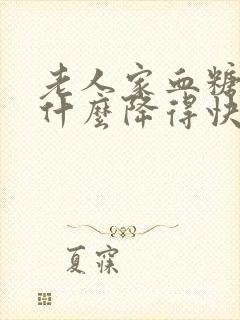 老人家血糖
什麼降得快
夏寀